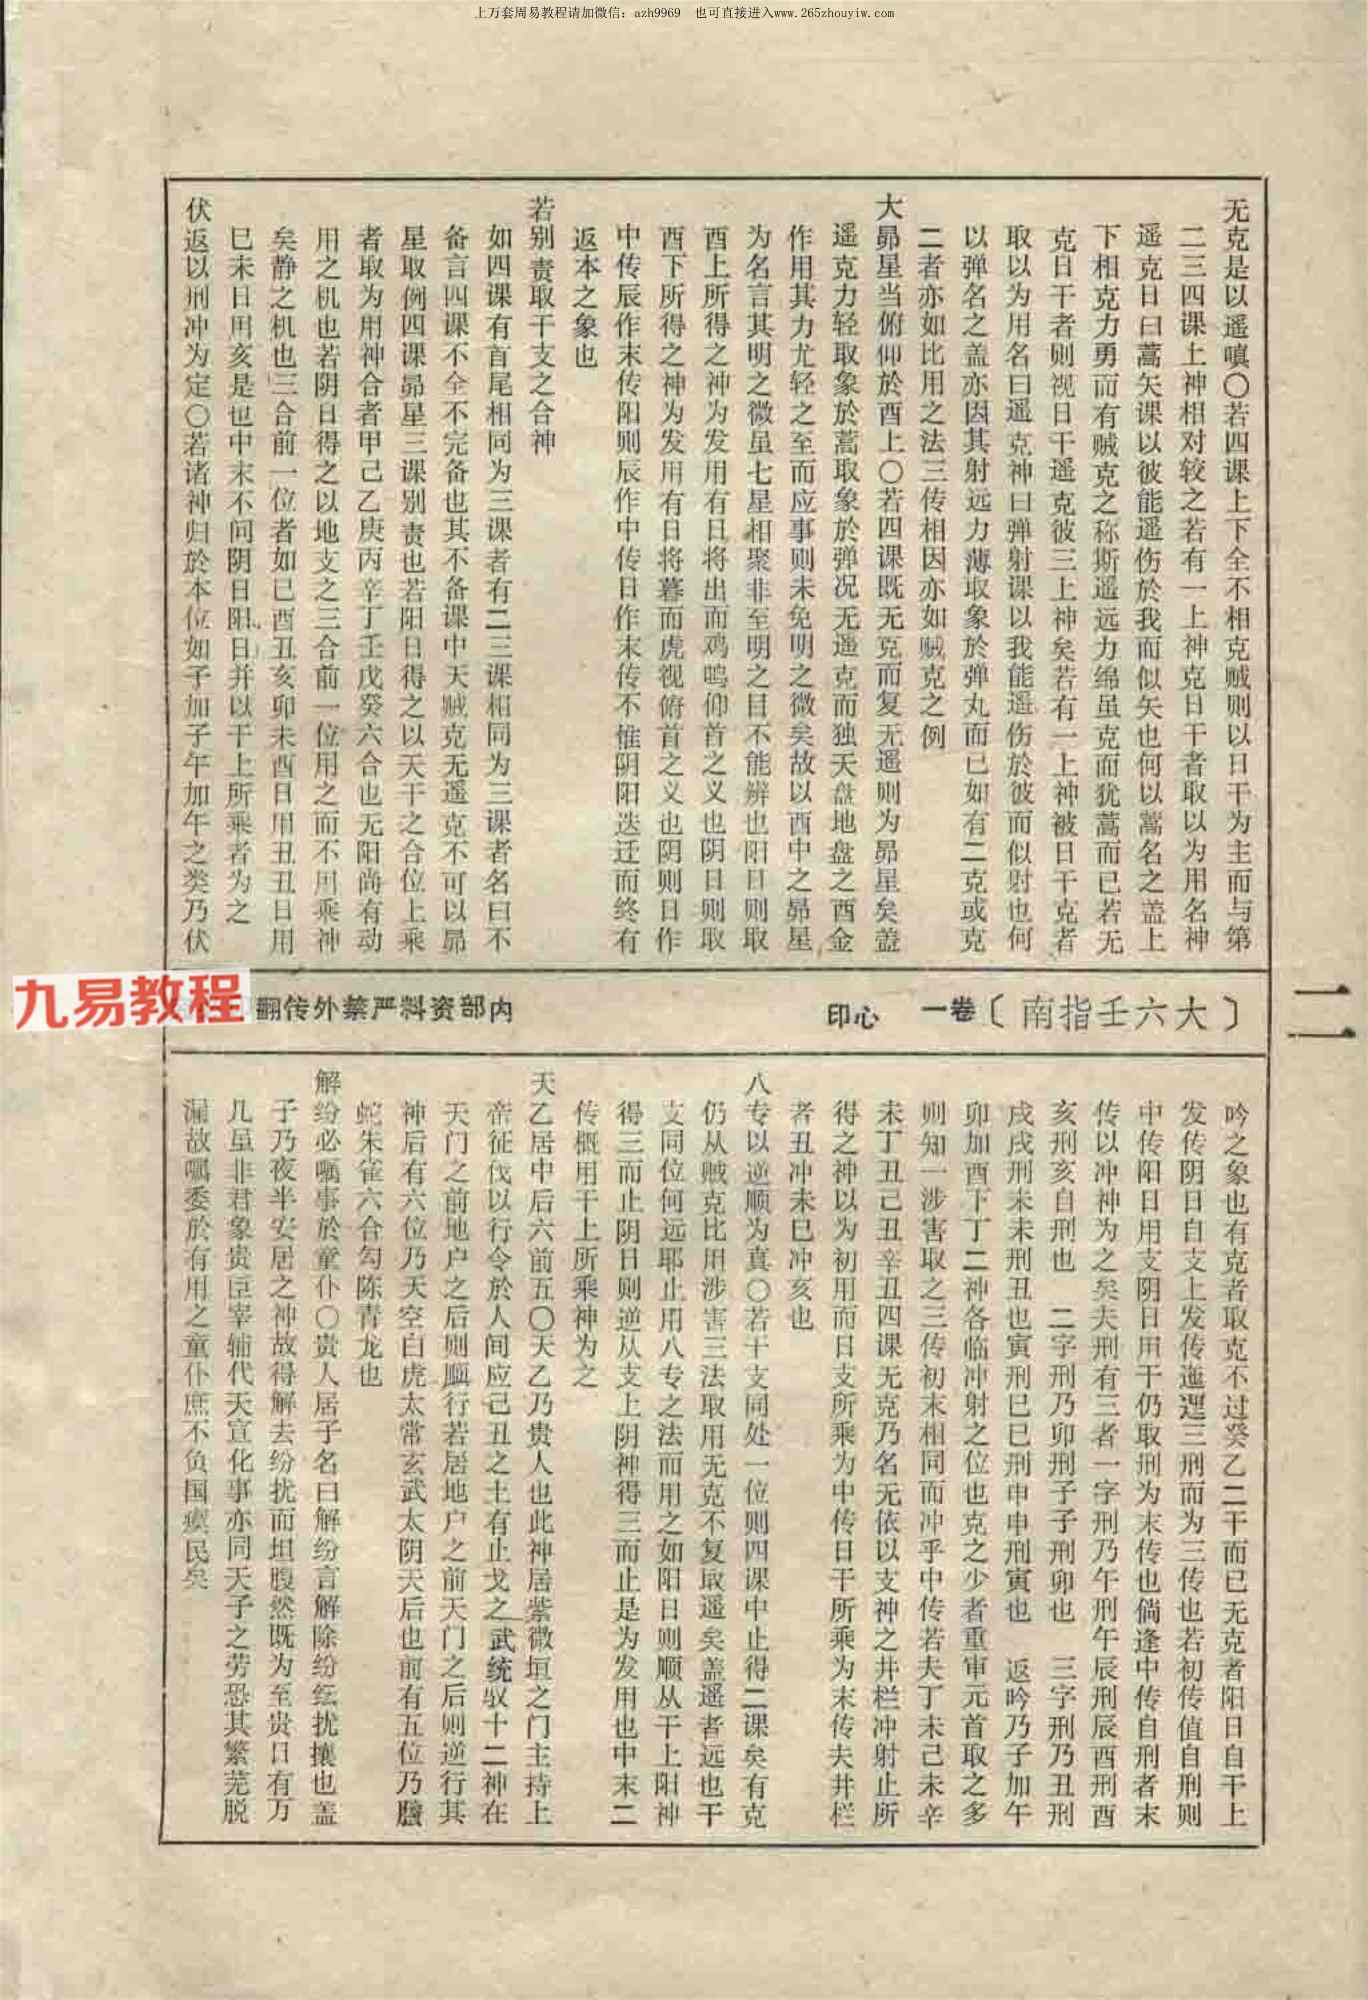 上万套周易教程请加微信：azh9969　也可直接进入www.265zhouyiw.com
无克是以遥嗔〇若四课上下全不相克贼则以日干为主而与第
二三四课上神相对较之若有一上神克日干者取以为用名神
遥克日曰蒿矢课以彼能遥伤於我而似矢也何以蒿名之盖上
下相克力勇而有贼克之称斯遥远力绵虽克而犹蒿而已若无
克日干者则视日干遥克彼三上神矣若有一上神被日干克者
取以为用名曰遥克神曰弹射课以我能遥伤於彼而似射也何
以弹名之盖亦因其射远力薄取象於弹丸而已如有二克或克
二者亦如比用之法三传相因亦如贼克之例
大昴星当俯仰於酉上〇若四课既无克而复无遥则为昴星矣盖
遥克力轻取象於蒿取象於弹况无遥克而独天盘地盘之酉金
作用其力尤轻之至而应事则未免明之微矣故以酉中之昴星
为名言其明之微虽七星相聚非至明之目不能辨也阳日则取
酉上所得之神为发用有日将出而鸡鸣仰首之义也阴日则取
酉下所得之神为发用有日将暮而虎视俯首之义也阴则日作
中传辰作末传阳则辰作中传日作末传不惟阴阳迭迁而终有
返本之象也
若别责取干支之合神
如四课有首尾相同为三课者有二三课相同为三课者名曰不
备言四课不全不完备也其不备课中天贼克无遥克不可以昴
星取例四课昴星三课别责也若阳日得之以天干之合位上乘
者取为用神合者甲己乙庚丙辛丁壬戊癸六合也无阳尚有动
用之机也若阴日得之以地支之三合前一位用之而不用乘神
矣静之机也三合前一位者如巳酉丑亥卯未酉日用丑丑日用
巳未日用亥是也中末不问阴日阳日并以干上所乘者为之
伏返以刑冲为定〇若诸神归於本位如子加子午加午之类乃伏
〔大六壬指南〕卷一　心印
内部资料严禁外传翻
九易教程
二一
吟之象也有克者取克不过癸乙二干而已无克者阳日自干上
发传阴日自支上发传迤逦三刑而为三传也若初传值自刑则
中传阳日用支阴日用干仍取刑为末传也倘逢中传自刑者末
传以冲神为之矣夫刑有三者一字刑乃午刑午辰刑辰酉刑酉
亥刑亥自刑也　二字刑乃卯刑子子刑卯也　三字刑乃丑刑
戌戌刑未未刑丑也寅刑巳巳刑申申刑寅也　返吟乃子加午
卯加酉下丁二神各临冲射之位也克之少者重审元首取之多
则知一涉害取之三传初末相同而冲乎中传若夫丁未己未辛
未丁丑己丑辛丑四课无克乃名无依以支神之井栏冲射止所
得之神以为初用而日支所乘为中传日干所乘为末传夫井栏
者丑冲未巳冲亥也
八专以逆顺为真〇若干支同处一位则四课中止得二课矣有克
仍从贼克比用涉害三法取用无克不复取遥矣盖遥者远也干
支同位何远耶止用八专之法而用之如阳日则顺从干上阳神
得三而止阴日则逆从支上阴神得三而止是为发用也中末二
传概用干上所乘神为之
天乙居中后六前五〇天乙乃贵人也此神居紫微垣之门主持上
帝征伐以行令於人间应己丑之土有止戈之武统驭十二神在
天门之前地户之后则顺行若居地户之前天门之后则逆行其
神后有六位乃天空白虎太常玄武太阴天后也前有五位乃螣
蛇朱雀六合勾陈青龙也
解纷必嘱事於童仆〇贵人居子名曰解纷言解除纷纭扰攘也盖
子乃夜半安居之神故得解去纷扰而坦腹然既为至贵日有万
几虽非君象贵臣宰辅代天宣化事亦同天子之劳恐其繁芜脱
漏故嘱委於有用之童仆庶不负国瘼民矣